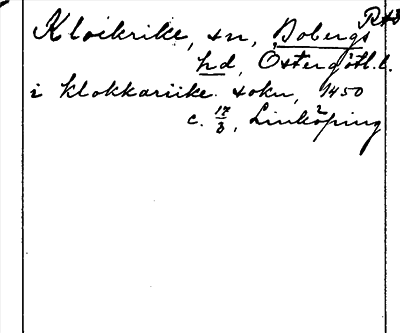 Klockrike, sn, Bobergs
hd, Östergötl. l.
i klokkariike sokn, 1450
c. 17/8, Linköping